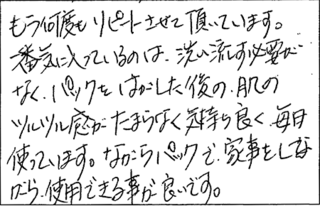 もう何度もリピートさせて頂いています。
一番気に入っているのは、洗い流す必要が
なく、パックをはがした後の、肌の
ツルツル感がたまらなく気持ち良く、毎日
使っています。ながらパックで、家事をしな
がら、使用できる事が良いです。